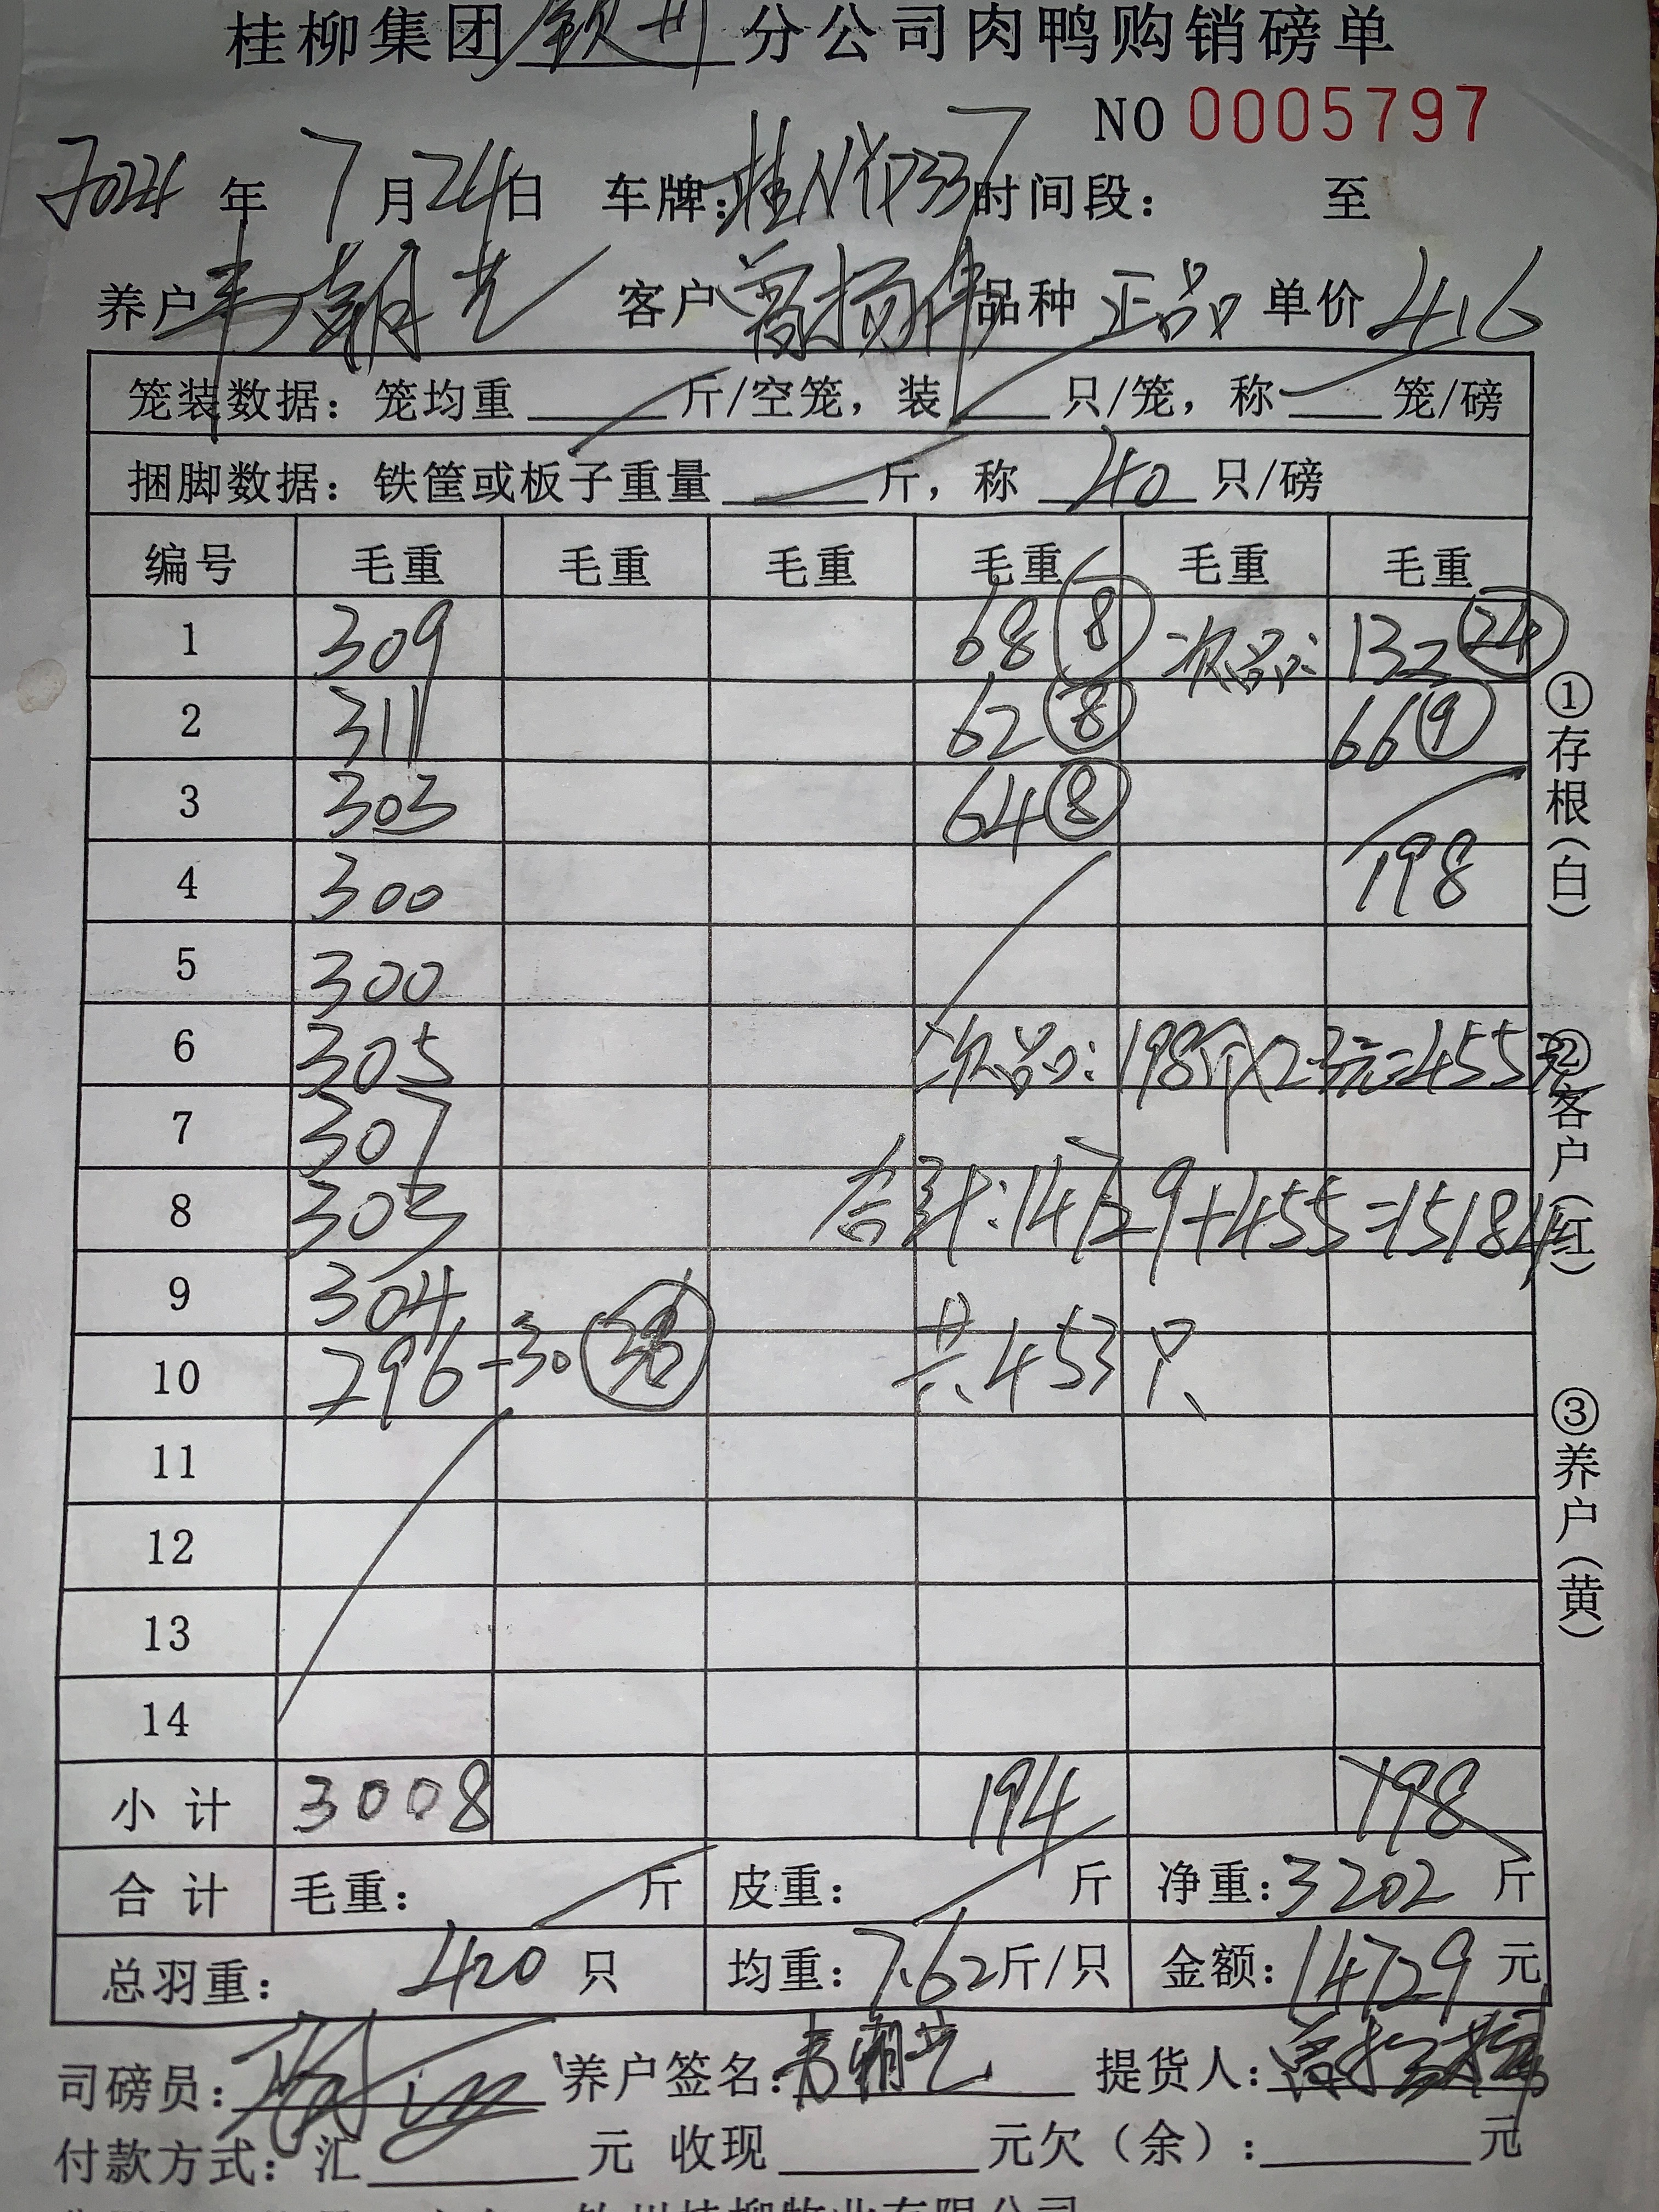 桂柳集团钦州分公司肉鸭购销磅单
NO 0005797
2024年7月24日 车牌: 时间段: 至
养户韦朝艺 客户曾扬伟 品种 正品 单价 4.6
笼装数据: 笼均重 斤/空笼, 装 只/笼, 称 笼/磅
捆脚数据: 铁筐或板子重量 斤, 称 40 只/磅
编号 毛重 毛重 毛重 毛重 毛重 毛重
1 309 68 8 次品: 132 24
2 311 62 8 66 9
3 303 64 8
4 300 198
5 300
6 305 次品: 198斤×2.3元=455元
7 307
8 303 合计:14729+455=15184
9 304
10 296-30 共453只
11
12
13
14
小计 3008 194 198
合计 毛重: 斤 皮重: 斤 净重:3202 斤
总羽重: 420 只 均重:7.62斤/只 金额:14729元
司磅员: 养户签名:韦朝艺 提货人:
付款方式: 汇 元 收现 元欠(余): 元
①存根(白)
②客户(红)
③养户(黄)